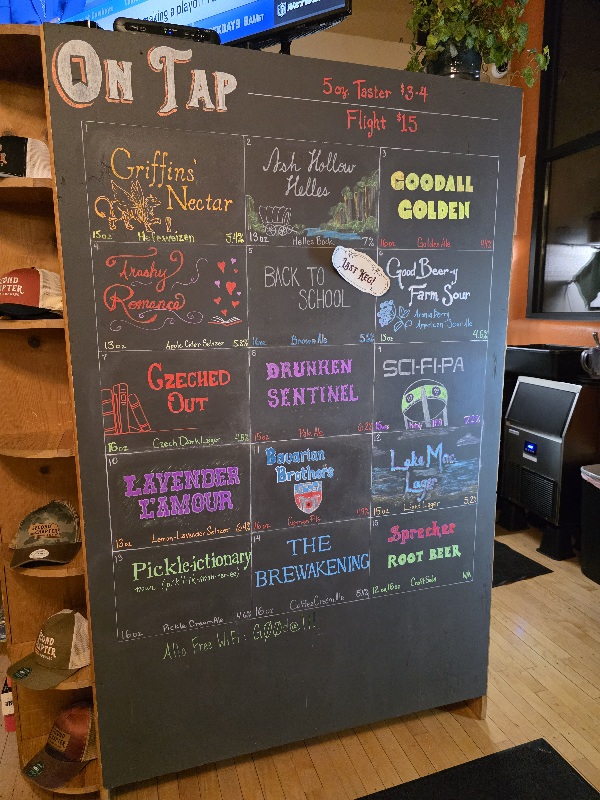 ON TAP
5 oz. Taster $3-4
Flight $15
1
Griffins'
Nectar
15oz Hefeweizen 5.4%
2
Ash Hollow
Helles
13oz Helles Bock 7%
3
GOODALL
GOLDEN
16oz Golden Ale
4
Trashy
Romance
13oz Apple Cider Seltzer 5.8%
5
BACK TO
SCHOOL
16oz Brown Ale
LAST KEG!
6
Good Beer-y
Farm Sour
Aronia Berry
American Sour Ale
13oz 4.6%
7
CZECHED
OUT
16oz Czech Dark Lager 4.5%
8
DRUNKEN
SENTINEL
15oz Pale Ale
9
SCI-FI-PA
15oz
10
LAVENDER
L'AMOUR
13oz Lemon-Lavender Seltzer 6.4%
11
Bavarian
Brothers
16oz German Pils
12
Lake Mac
Lager
15oz Light Lager 5.2%
13
Pickle-ictionary
noun
16oz Pickle Cream Ale 4.6%
14
THE
BREWAKENING
16oz Coffee Cream Ale
15
Sprecher
ROOT BEER
12oz/16oz Craft Soda N/A
Alto Free WiFi: